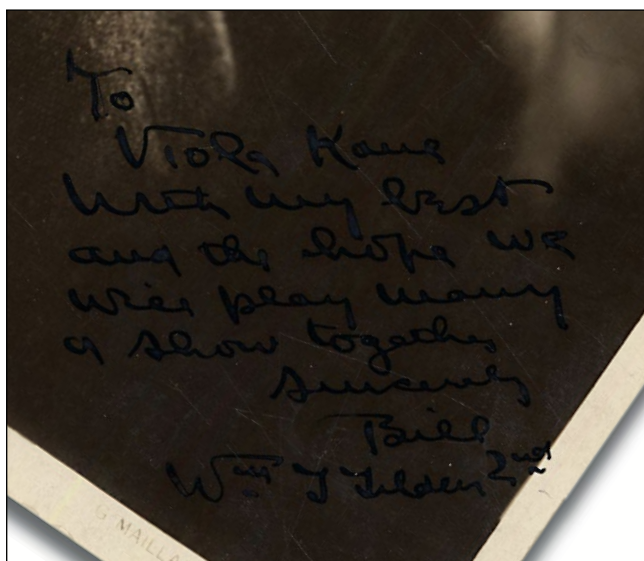 To
Viola Kane
With my best
and the hope we
will play many
a show together
Sincerely
Bill
Wm T Tilden 2nd
G MAILLA